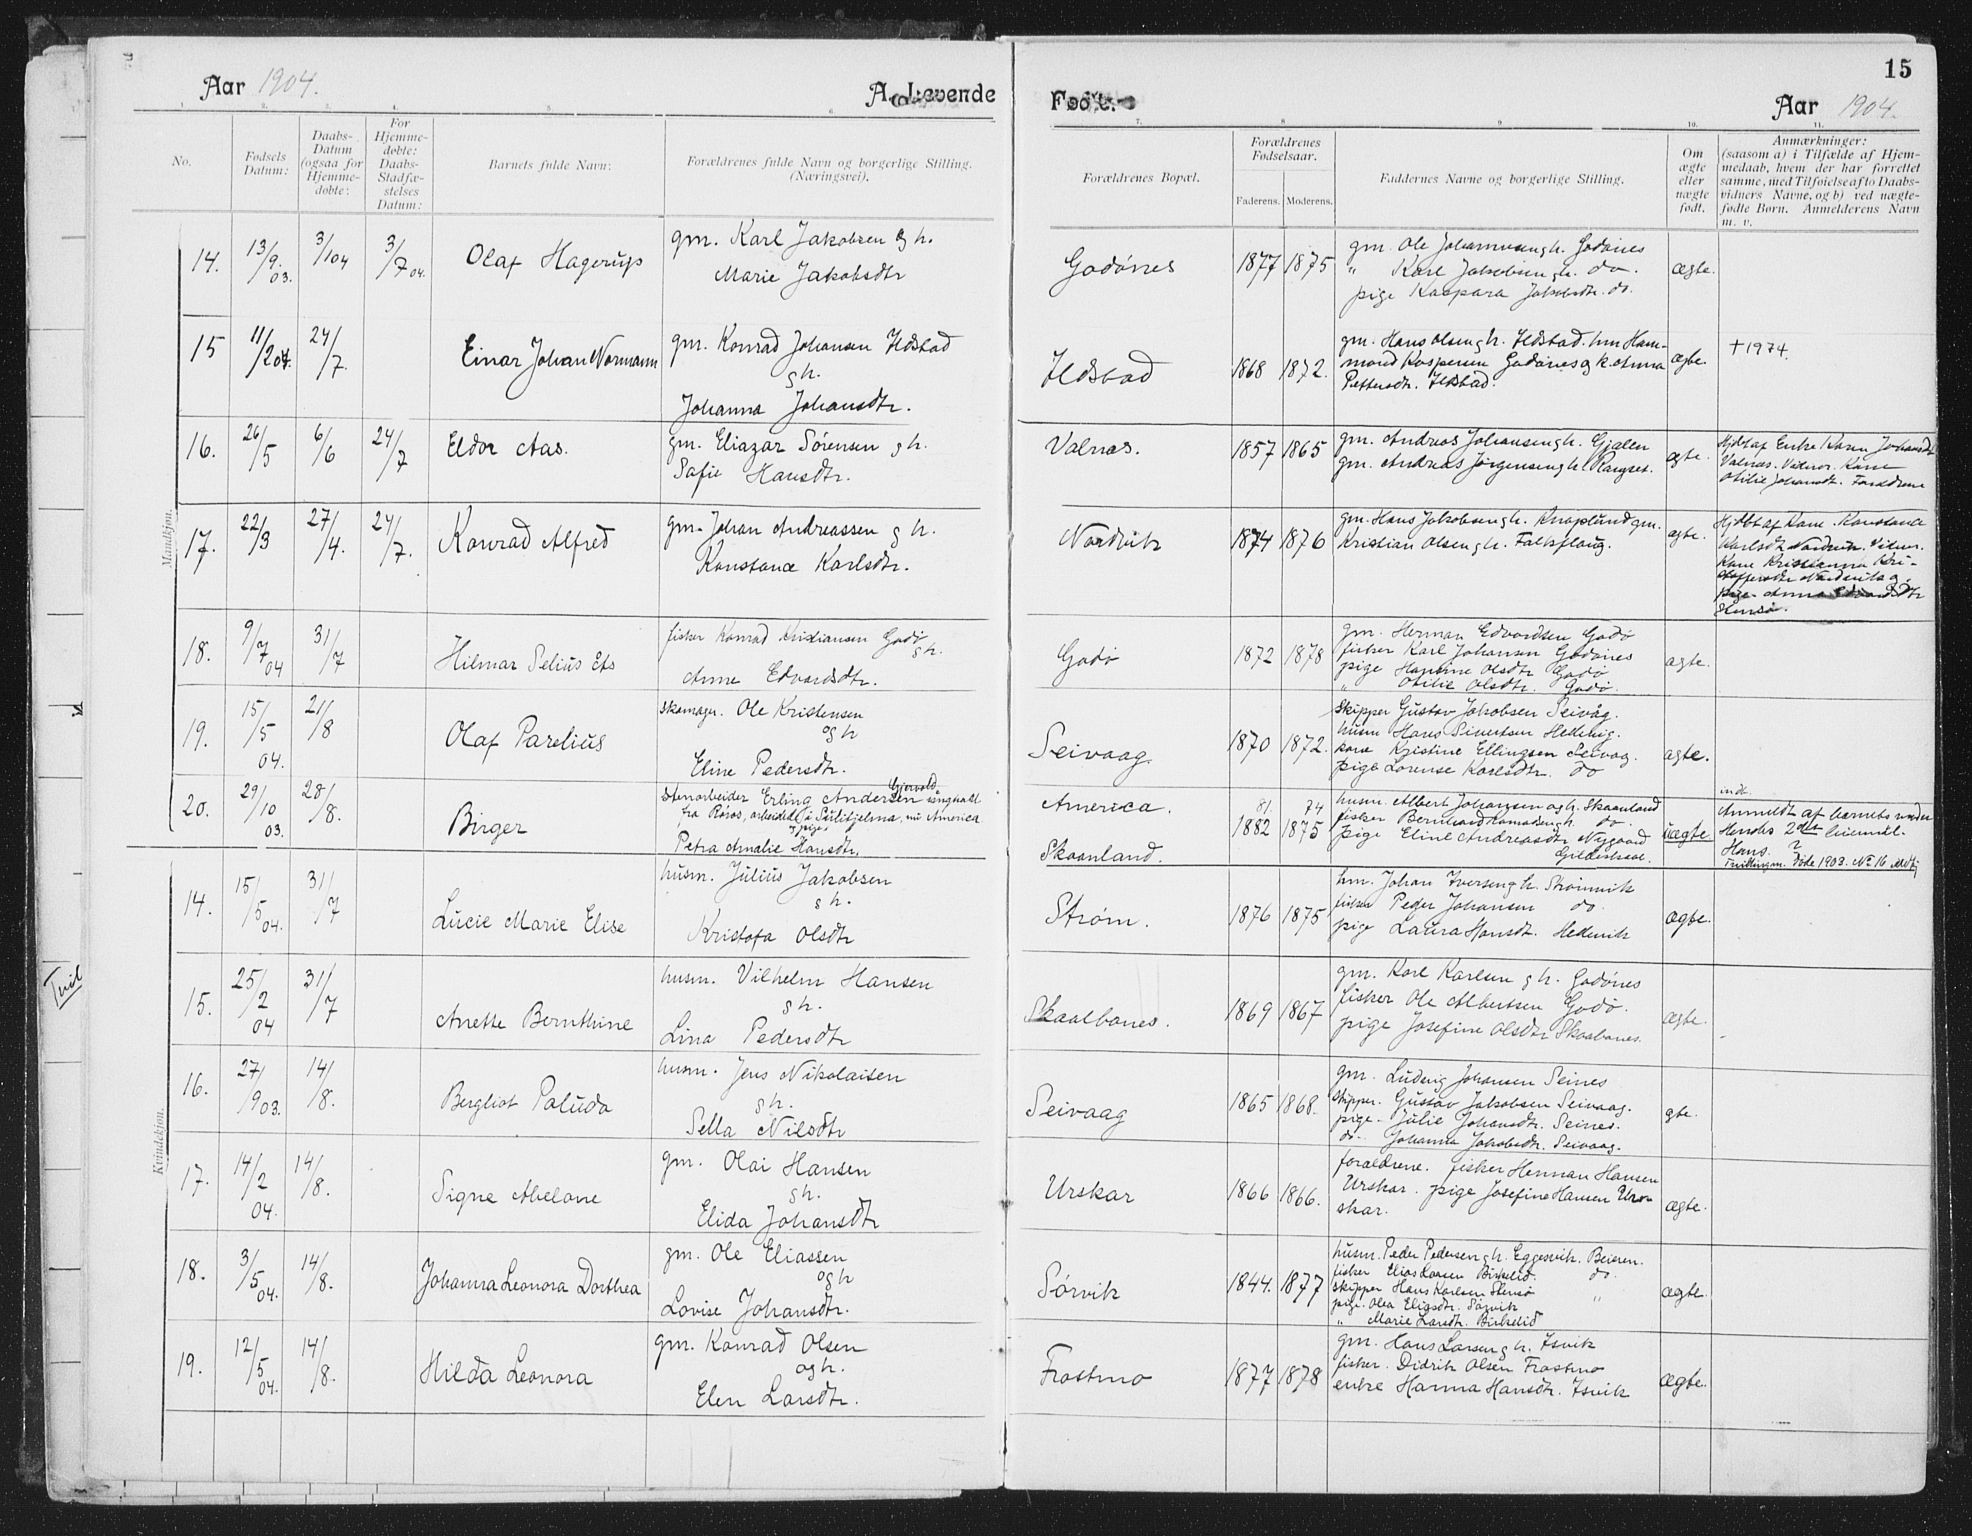 15
Aar 1904. A. Levende Født. Aar 1904.
1. 2. 3. 4. 5. 6. 7. 8 9 10. 11.
No.
Fødsels Datum:
Daabs-Datum (ogsaa for Hjemmedøbte:
For Hjemmedøbte: Daabs-Stadfæstelses Datum:
Barnets fulde Navn:
Forældrenes fulde Navn og borgerlige Stilling. (Næringsvei).
Forældrenes Bopæl.
Forældrenes Fødselsaar.
Faderens. Moderens.
Faddernes Navne og borgerlige Stilling.
Om ægte eller uægte født.
Anmærkninger: (saasom a) i Tilfælde af Hjemmedaab, hvem der har forrettet samme, med Tilføielse af to Daabsvidners Navne, og b) ved uægtefødte Børn. Anmelderens Navn m. v.
Mandkjøn.
14. 13/9. 03. 3/1 04 3/7 04. Olaf Hagerup
gm. Karl Jakobsen og h.
Marie Jakobsdtr
Godönes 1877 1875
gm. Ole Johannesen g h. Godönes
" Karl Jakobsen g h. do.
pige Kaspara Jakobsdtr. do.
ægte.
15 11/2 04. 24/7. Einar Johan Normann
gm. Konrad Johansen Ildstad
g h.
Johanna Johansdtr.
Ildstad 1868 1872.
gm. Hans Olsen g h. Ildstad. hm Ham-
mond Kaspersen Godönes og k. Anna
Pettersdtr. Ildstad.
ægte.
† 1974.
16. 26/5 6/6 24/7 Eldor Aas.
gm. Eliazar Sörensen g h.
Safie Hansdtr.
Valnes. 1857 1865
gm. Andreas Johansen g h. Gjallen
gm. Andreas Jørgensen g h.
ægte.
Hjdbt af Enke Karen Johansdtr
Valnes. Vidner. Kone
Otilie Johansdtr. Forældrene
17. 22/3 27/4. 24/7. Konrad Alfred
gm. Johan Andreassen g h.
Konstance Karlsdtr.
Nordvik 1874 1876
gm. Hans Jakobsen g h. Knaplund gm.
Kristian Olsen g h. Falkflaug.
ægte.
Hjdbt af Kone. Konstance
Karlsdtr Nordvik. Vidner.
Kone Kristianna Kri-
stoffersdtr Nordvik og
pige Anna Edvardsdtr
18. 9/7 04 31/7 Hilmar Selius Ets
fisker Konrad Kristiansen Godö
g h.
Anne Edvardsdtr.
Godö 1872 1878
gm. Herman Edvardsen Godö
fisker Karl Johansen Godönes
pige Hansine Olsdtr Godö
" Otilie Olsdtr. Godö.
ægte.
19. 15/5 04. 21/8 Olaf Parelius
skomager. Ole Kristensen
og h
Eline Pedersdtr.
Seivaag 1870 1872.
Skipper Gustav Jakobsen Seivåg.
husm Hans Sivertsen
kone Kristine Ellingsen Seivag.
pige Lorense Karlsdtr. do
ægte.
20. 29/10 03. 28/8. Birger
Stenarbeider Erling Andersen Gjersvold ungkarl
fra Röros, arbeidet i Sulitjelma, nu America
pige
Petra Amalie Hansdtr.
America.
Skaanland.
81. 74
1882 1875
husm. Albert Johansen og h. Skaanland
fisker Bernhard g h. do.
pige Eline Andreasdtr Nygaard
Gildeskaal.
uægte
indt.
Anmeldt af barnets moder
Hendes 2det leiermål.
Hans. ?
Tvillingm. Döde 1903. No 16
Kvindekjøn.
14. 15/5 04. 31/7 Lucie Marie Elise
husm. Julius Jakobsen
g h.
Kristofa Olsdtr
Ström. 1876 1875
hm. Johan Iversen g h. Strömvik
fisker Peder Johansen do.
pige Laura Hansdtr. Hedenik
ægte.
15. 25/2 04 31/7 Anette Bernthine
husm. Vilhelm Hansen
g h.
Lina Pedersdtr
Skaalbones. 1869 1867
gm. Karl Karlsen g h. Godönes
fisker Ole Albertsen Godö.
pige Josefine Olsdtr Skaabones.
ægte.
16. 27/9 03. 14/8. Bergliot Paluda
husm. Jens Nikolaisen
g h.
Sella Nilsdtr
Seivaag 1865 1868.
gm. Ludvig Johansen Seines
Skipper. Gustav Jakobsen Seivaag.
pige - Julie Johansdtr. Seines.
do - Johanna Jakobsdtr. Seivaag.
gte.
17. 14/2 04. 14/8. Signe Abelone
gm. Olai Hansen
g h.
Elida Johansdtr
Urskar 1866 1866.
foraeldrene. fisker Herman Hansen
Urskar. pige Josefine Hansen Ur-
skar.
ægte.
18. 3/5 04. 14/8. Johanna Leonora Dorthea
gm. Ole Eliassen
og h
Lovise Johansdtr.
Sörvik 1844. 1877
husm. Peder Pedersen g h. Eggesvik. Beieren.
fisker Elias Larsen Birkelid. do.
Skipper Hans Karlsen "
pige. Olea Eliasdtr. Sörvik
" Marie Larsdtr. Birkelid
ægte.
19. 12/5 04. 14/8. Hilda Leonora
gm. Konrad Olsen
og h.
Elen Larsdtr.
Frostmo 1877 1878
gm. Hans Larsen g h. Isvik
fisker. Didrik Olsen Frostmo
enke Hanna Hansdtr. Isvik
ægte.
Tvil